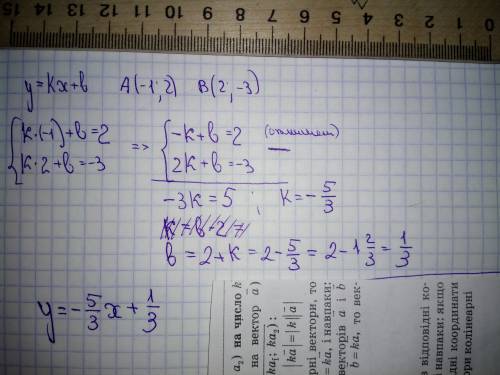 15 14 13 12 11 10 9 8 7 6 5 4 3 2 1 0
y=Kx+b A(-1;2) B(2;-3)
{ K·(-1)+b=2 => { -K+b=2
K·2+b=-3 2K+b=-3
-3K=5; K=-5/3
b=2+K=2-5/3=2-1 2/3=1/3
y=-5/3x+1/3
a₂) на число k
на вектор a)
ka₁; ka₂):
|ka|=|k||a|
ні вектори, то
=ka, і навпаки:
векторів a і b
b=ka, то век-
відповідні ко-
і навпаки: якщо
дні координати
ри колінеарні